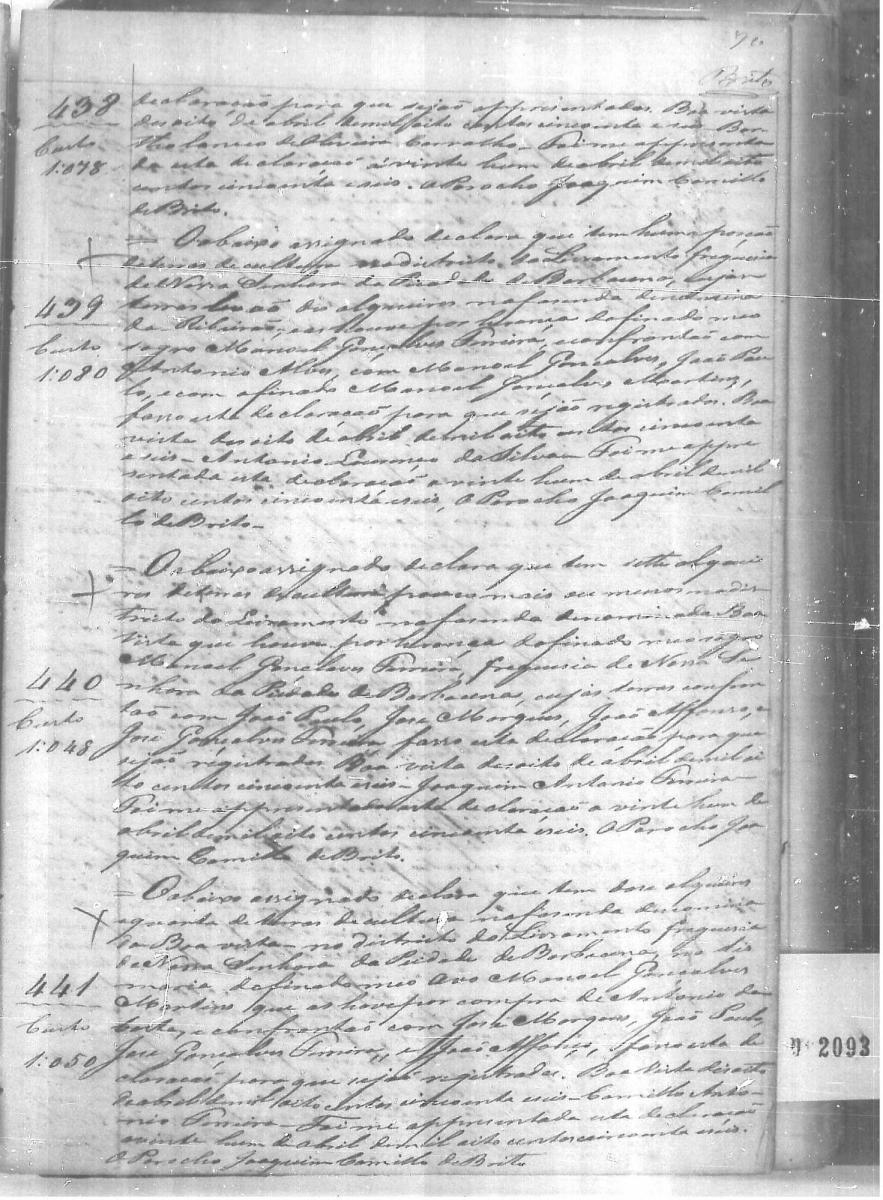 70
Brito
438
Custo
1:078
declaracaõ para que sejaõ appresentadas. Boa vista
desoito de abril demil oito centos cincoenta e seis Bar-
de Oliveira Carvalho - Foi me appresenta-
da esta declaracaõ á vinte hum de abril demil oito
centos cincoenta eseis. O Parocho Joaquim Camillo
de Brito.
= Oabaixo assignado declara que tem huma porcaõ
deterras de cultura nodistricto do Livramento freguesia
de Nossa Senhora da Piedade de Barbacena, cujas
439
terras de alqueires nafasenda denomina
da Ribeiraõ, as houve por heranca dofinado meo
Custo
sogro Manoel Gonçalves Ferreira, econfrontaõ com
1:080
Antonio Alves, com Manoel Gonçalves, Joaõ Pau-
lo, e com ofinado Manoel Gonçalves Martins,
fasso esta declaracaõ para que sejaõ registradas. Boa
vista desoito de abril demil oito centos cincoenta
eseis - Antonio Lourenço da Silva - Foi me appre
sentada esta declaracaõ a vinte hum de abril demil
oito centos cincoenta eseis, O Parocho Joaquim Camil-
lo de Brito -
= Oabaixo assignado declara que tem sette alquei-
res deterras decultura pouco mais ou menos nodis-
tricto do Livramento nafasenda denominada Boa
vista que houve por heranca dofinado meo sogro
Manoel Gonçalves Ferreira freguesia de Nossa Se-
440
nhora da Piedade de Barbacena, cujas terras confron
Custo
taõ com Joaõ Paulo, Jose Marques, Joaõ Affonso, e
1:048
José Gonçalves Ferreira fasso esta declaracaõ para que
sejaõ registradas Boa vista desoito de abril demil oi-
to centos cincoenta eseis - Joaquim Antonio Ferreira -
Foi me appresentada esta declaracaõ a vinte hum de
abril demil oito centos cincoenta eseis. O Parocho Joa-
quim Camillo de Brito.
= Oabaixo assignado declara que tem dose alqueires
equarta de terras de cultura nafasenda denomina
da Boa vista no districto do Livramento freguesia
de Nossa Senhora da Piedade de Barbacena, na sis
441
maria dofinado meo Avo Manoel Gonçalves
Martins que as houve por compra de Antonio da
Custo
Costa, e confrontaõ com José Marques, Joaõ Paulo,
1:050
José Gonçalves Ferreira, e Joaõ Affonço, fasso esta de
claracaõ para que sejaõ registradas. Boa vista desoito
de abril demil oito centos cincoenta eseis - Camillo Anto-
nio Ferreira - Foi me appresentada esta declaracaõ
avinte hum de abril demil oito centos cincoenta eseis.
O Parocho Joaquim Camillo de Brito
2093